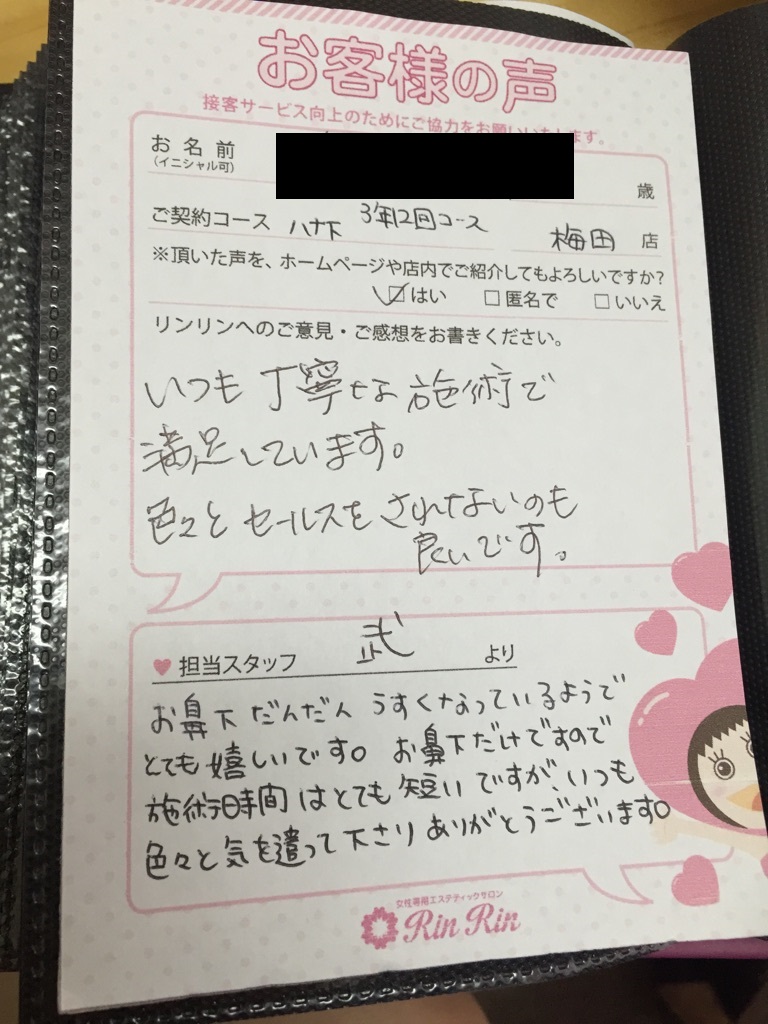 お客様の声
接客サービス向上のためにご協力をお願いいたします。
お名前
(イニシャル可)
歳
ご契約コース ハナ下 3年12回コース 梅田 店
※頂いた声を、ホームページや店内でご紹介してもよろしいですか?
はい □匿名で □いいえ
リンリンへのご意見・ご感想をお書きください。
いつも丁寧な施術で
満足しています。
色々とセールスをされないのも
良いです。
担当スタッフ 武 より
お鼻下だんだんうすくなっているようで
とても嬉しいです。お鼻下だけですので
施術時間はとても短いですが、いつも
色々と気を遣って下さりありがとうございます。
女性専用エステティックサロン
Rin Rin